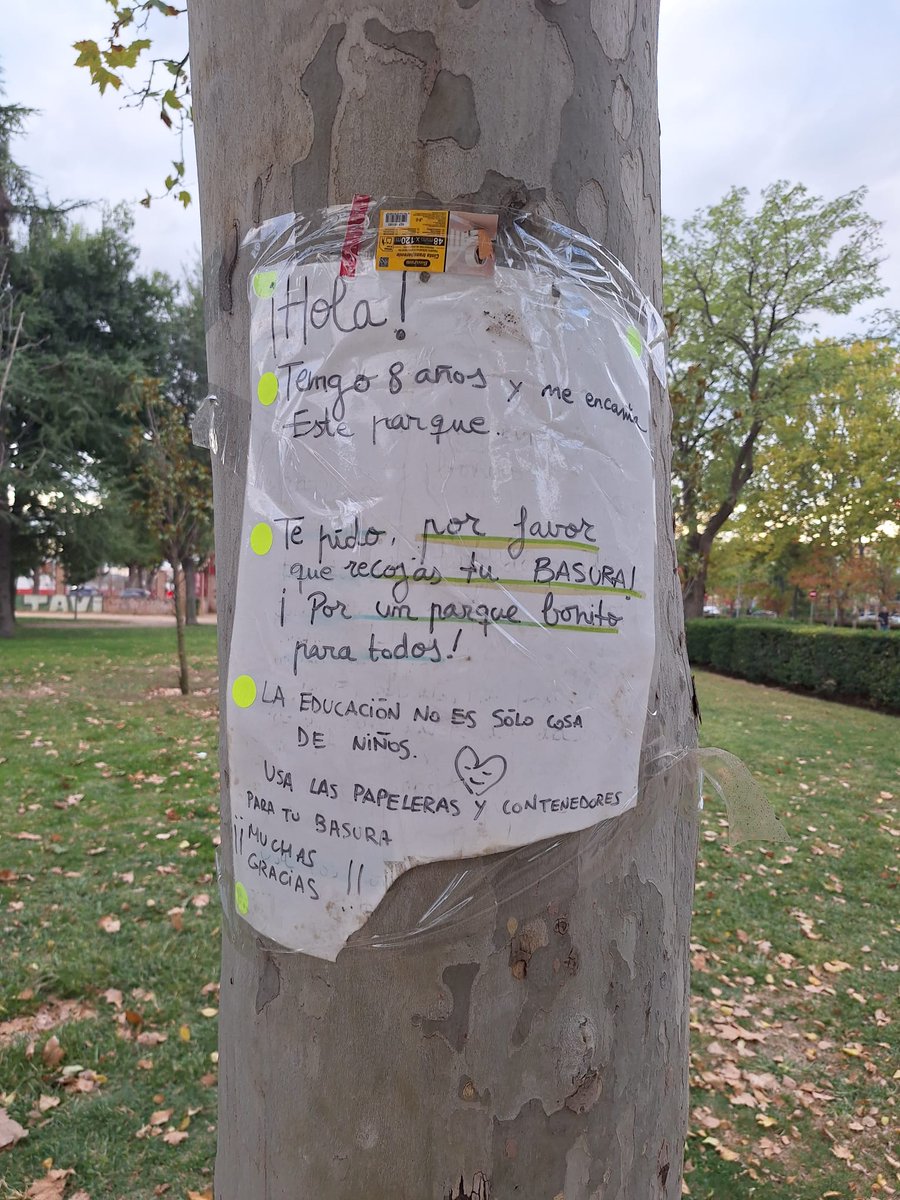 ¡Hola!
Tengo 8 años y me encanta
Este parque.
Te pido, por favor
que recojas tu BASURA!
¡Por un parque bonito
para todos!
LA EDUCACIÓN NO ES SÓLO COSA
DE NIÑOS.
USA LAS PAPELERAS Y CONTENEDORES
PARA TU BASURA
¡¡MUCHAS
GRACIAS!!
48mm x 120m